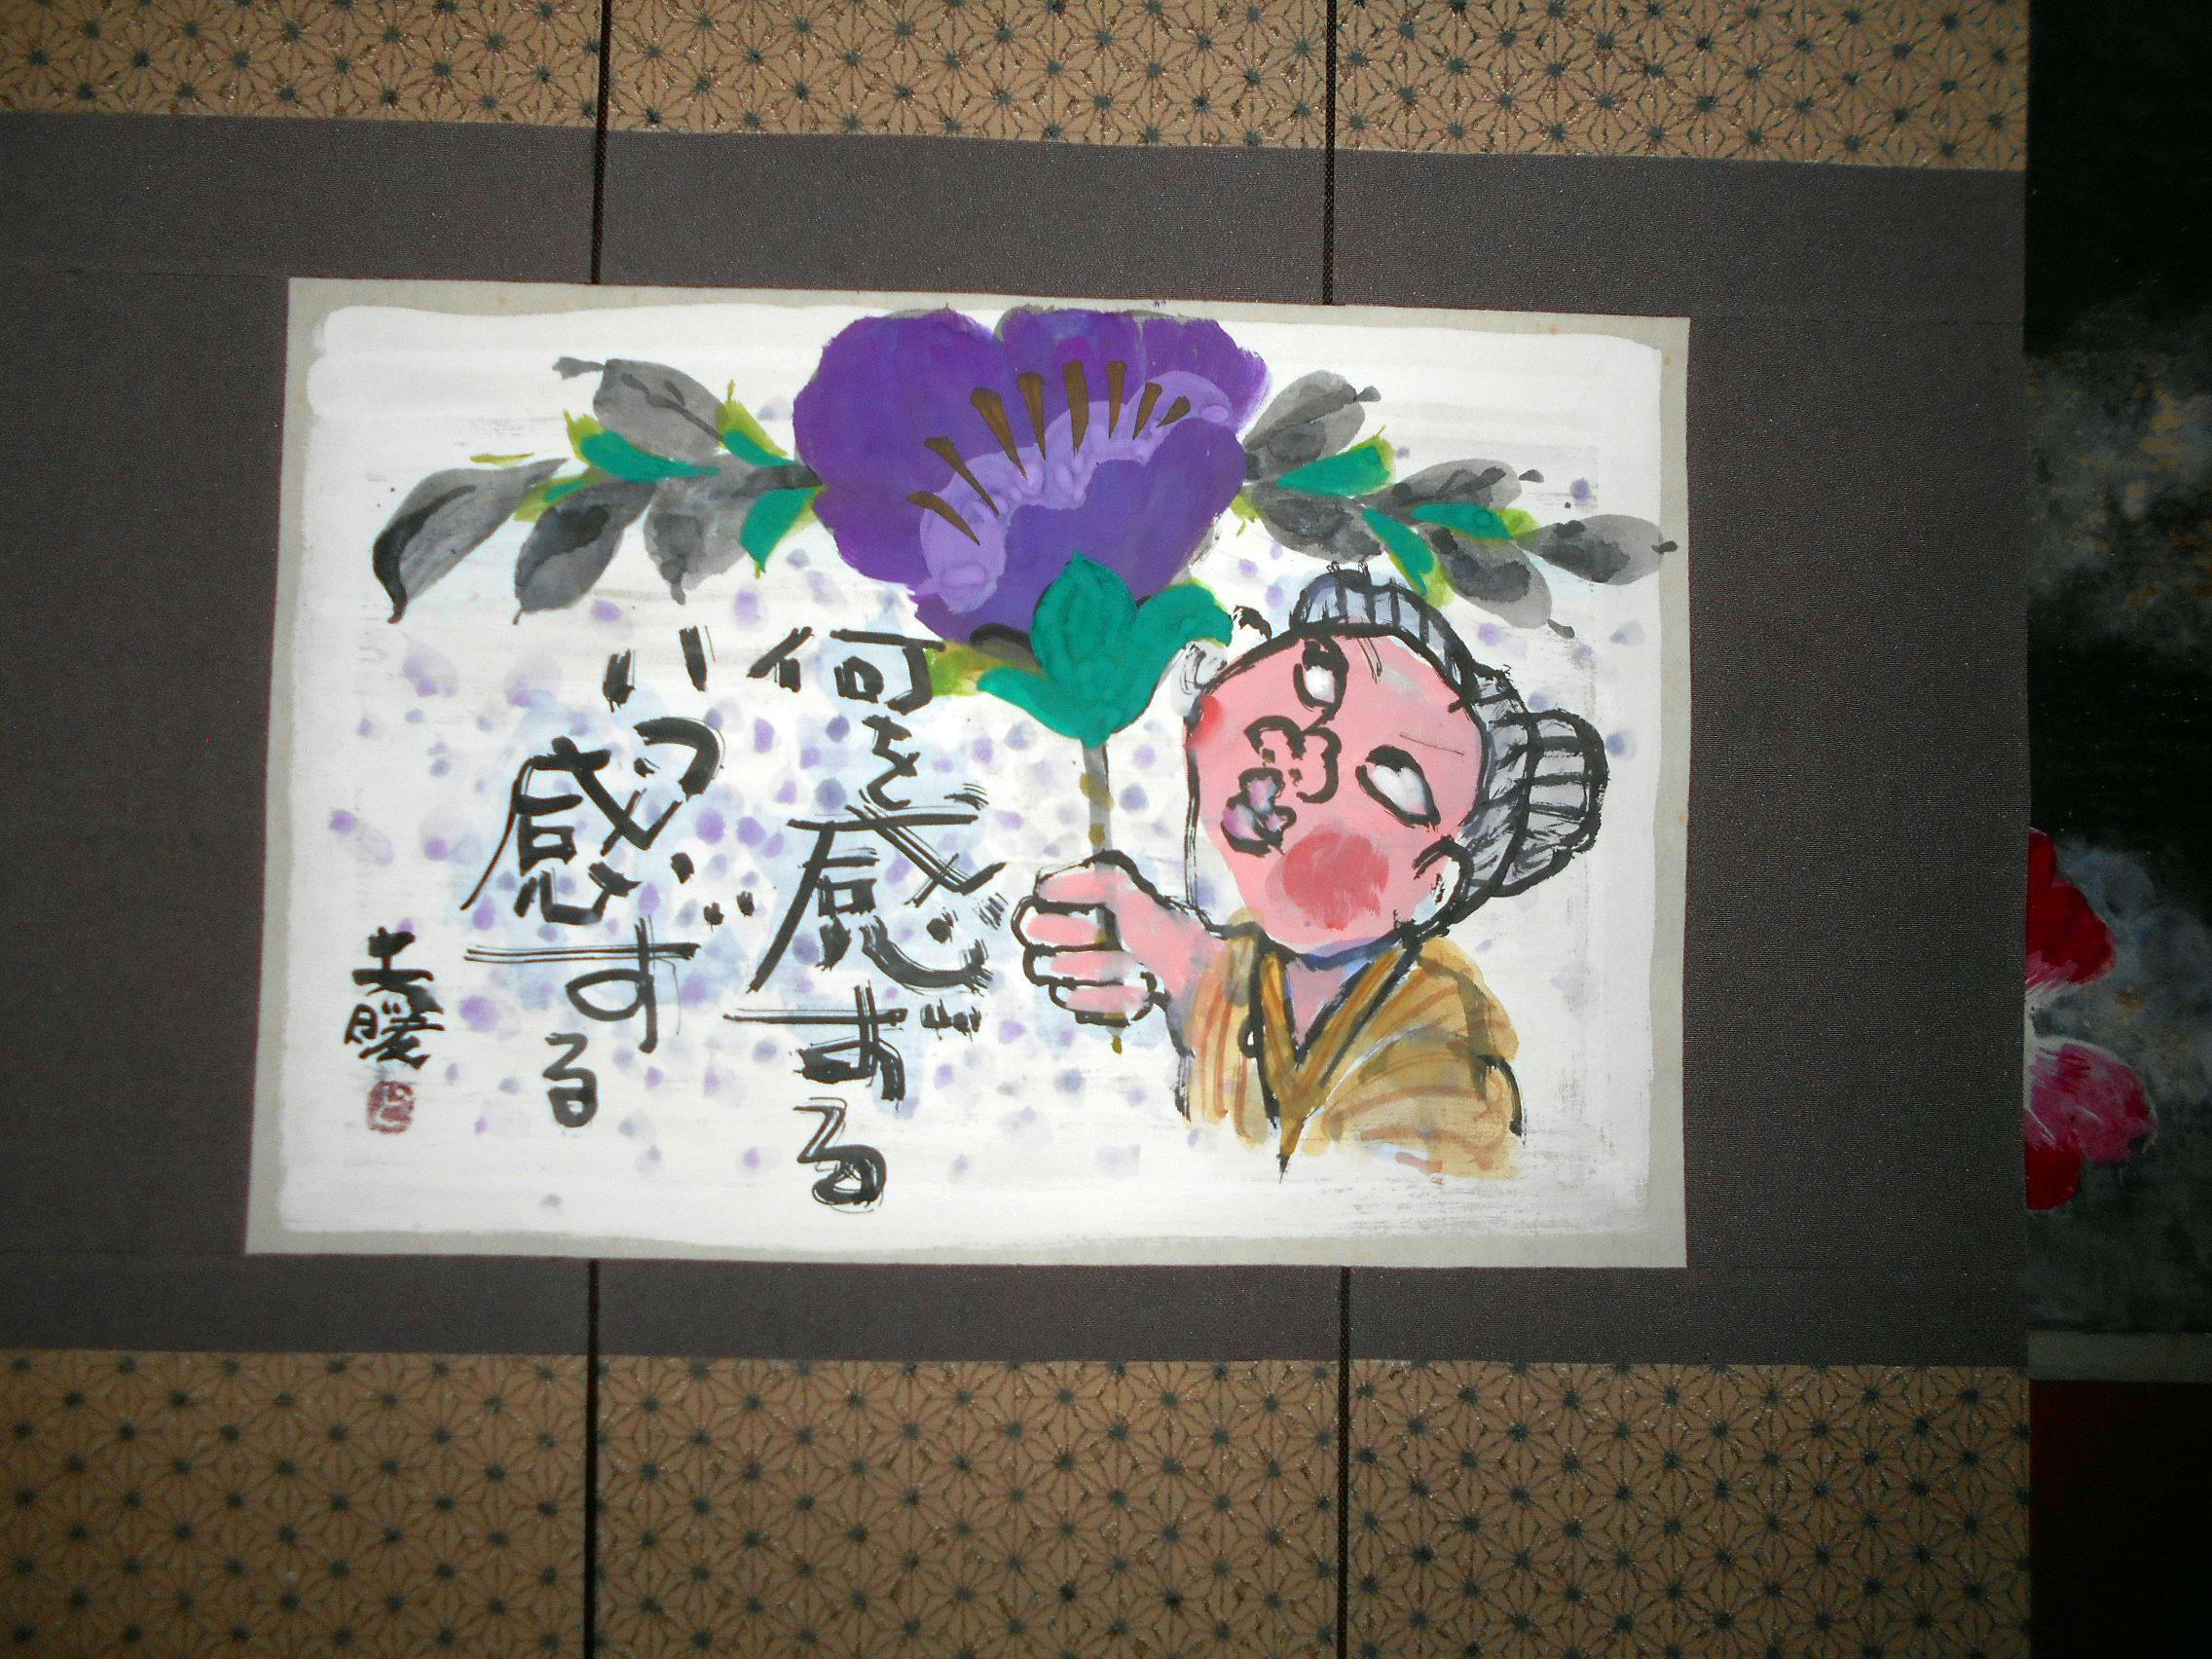 何を感ずる
いつ感ずる